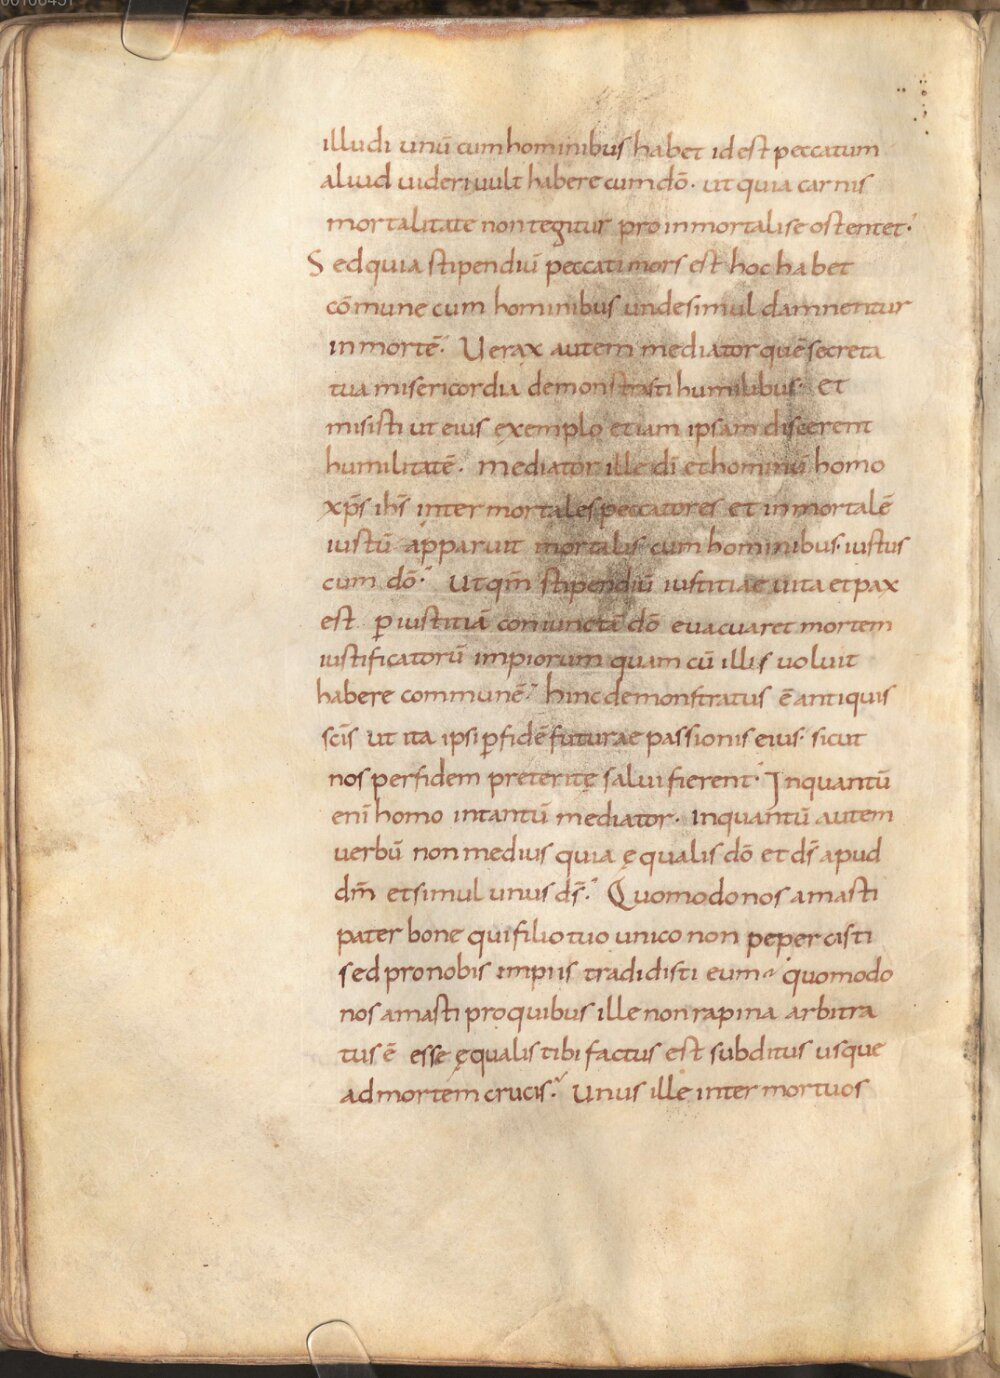 illudi unū cum hominibus habet id est peccatum
aliud uideri uult habere cum dō· ut quia carnis
mortalitate non tegitur pro inmortali se ostentet·
Sed quia stipendiū peccati mors est hoc habet
cōmune cum hominibus unde simul damnentur
in mortē· Uerax autem mediator quē secreta
tua misericordia demonstrasti humilibus· et
misisti ut eius exemplo etiam ipsam discerent
humilitatē· mediator ille dī et hominū homo
xp̄s ih̄s inter mortales peccatores et inmortalē
iustū apparuit mortalis cum hominibus· iustus
cum dō· Ut qm̄ stipendiū iustitiae uita et pax
est ꝑ iustitiā coniunctā dō euacuaret mortem
iustificatorū impiorum quam cū illis uoluit
habere communē· hinc demonstratus ē antiquis
sc̄is ut ita ipsi ꝑ fidē futurae passionis eius· sicut
nos per fidem preteritę salui fierent· Inquantū
eni̅ homo intantū mediator· Inquantū autem
uerbū non medius quia ęqualis dō et ds̄ apud
dm̄ et simul unus ds̄· Quomodo nos amasti
pater bone qui filio tuo unico non pepercisti
sed pro nobis impiis tradidisti eum quomodo
nos amasti pro quibus ille non rapina arbitra
tus ē esse ęqualis tibi factus est subditus usque
ad mortem crucis· Unus ille inter mortuos